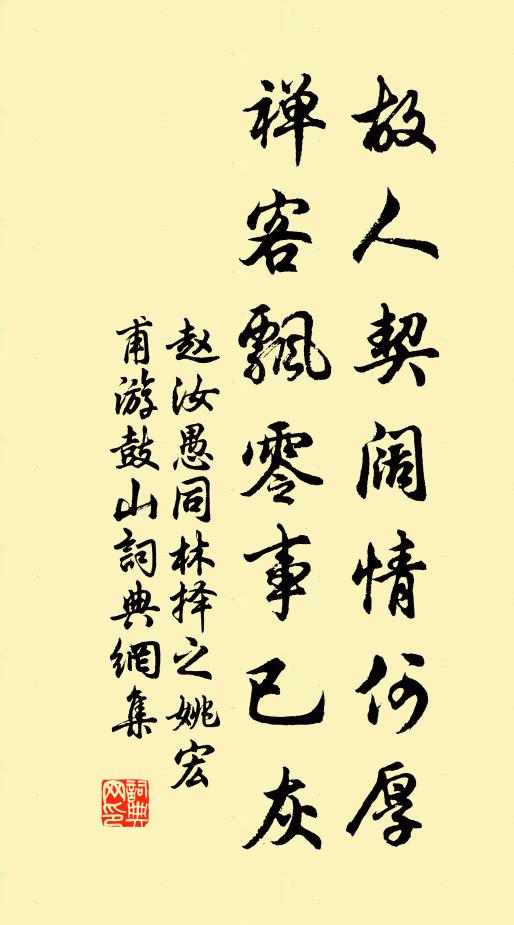 故人契阔情何厚
禅客飘零事已灰
赵汝愚同林择之姚宏
甫游鼓山詞典網集
詞典网印